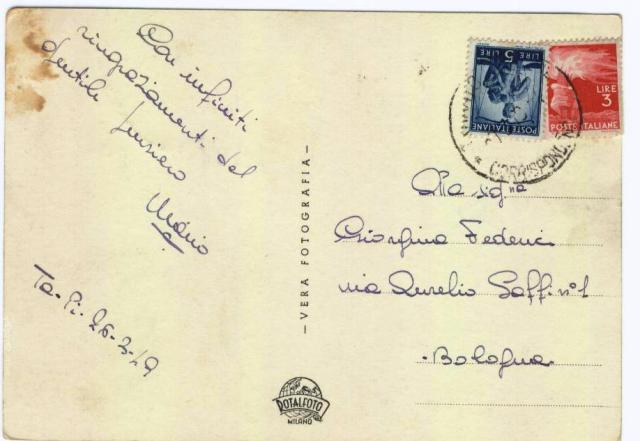 Con infiniti
ringraziamenti del
Gentile pensiero
Mario
Ta-Pi-26-3-49
VERA FOTOGRAFIA
ROTALFOTO
MILANO
LIRE 5
POSTE ITALIANE
LIRE
3
POSTE ITALIANE
Alla sig.na
Giorgina Federici
via Aurelio Saffi n° 1
Bologna